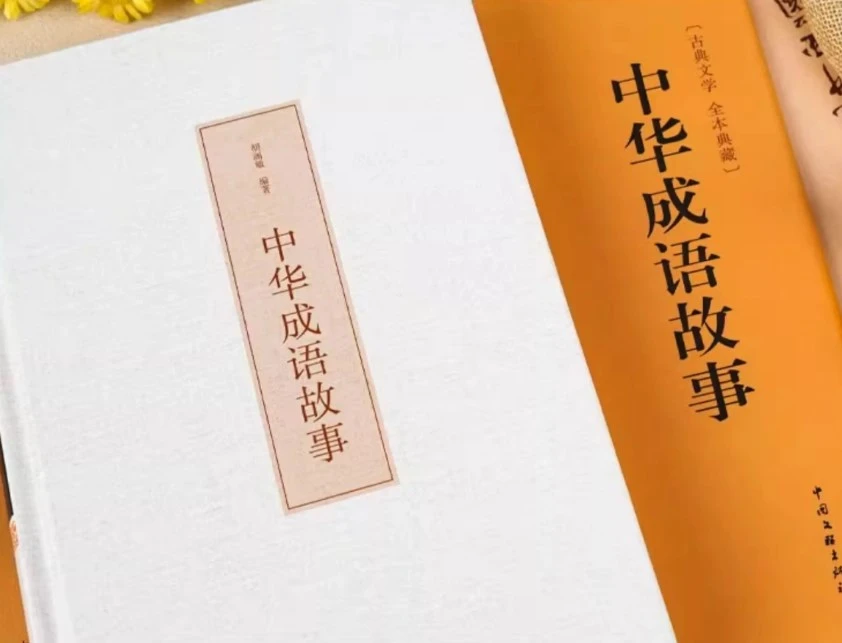 编著
中华成语故事
［古典文学 全本典藏］
中华成语故事
中国文联出版社